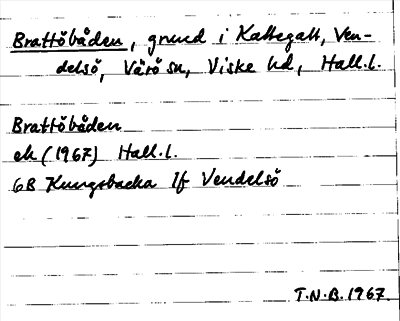 Brattöbåden, grund i Kattegatt, Ven-
delsö, Värö sn, Viske hd, Hall.l.
Brattöbåden
ek (1967) Hall.l.
6B Kungsbacka 1f Vendelsö
T.N.B. 1967